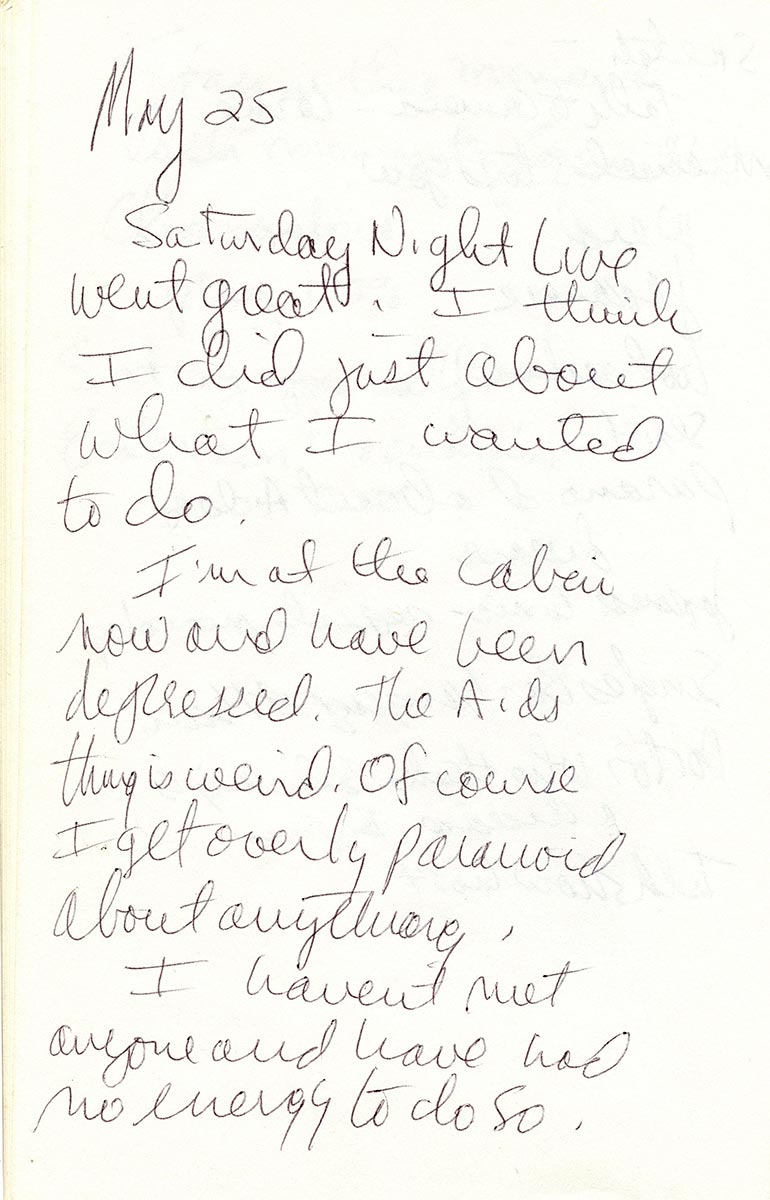 May 25
Saturday Night Live
went great. I think
I did just about
what I wanted
to do.
I'm at the cabin
now and have been
depressed. The Aids
thing is weird. Of course
I get overly paranoid
about anything.
I haven't met
anyone and have had
no energy to do so.